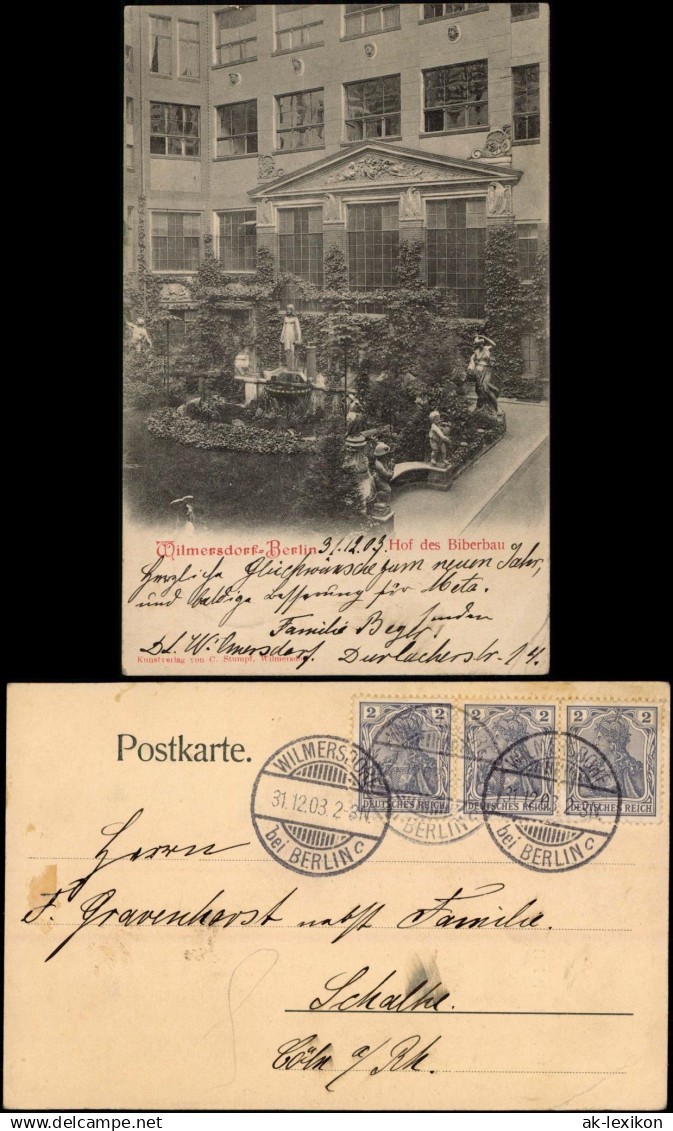 Wilmersdorf-Berlin 31.12.03. Hof des Biberbau
Herzliche Glückwünsche zum neuen Jahr,
und baldige Besserung für Meta.
senden
Familie
Dt. Wilmersdorf. Durlacherstr. 14.
Kunstverlag von C. Stumpf, Wilmersdorf
2 2 2
DEUTSCHES REICH DEUTSCHES REICH DEUTSCHES REICH
Postkarte.
WILMERSDORF
31.12.03. 2-3N.
bei BERLIN c
BERLIN
WILMERSDORF
bei BERLIN c
Herrn
F. Gravenhorst nebst Familie.
Schalke.
Cöln a/Rh.
ak-lexikon